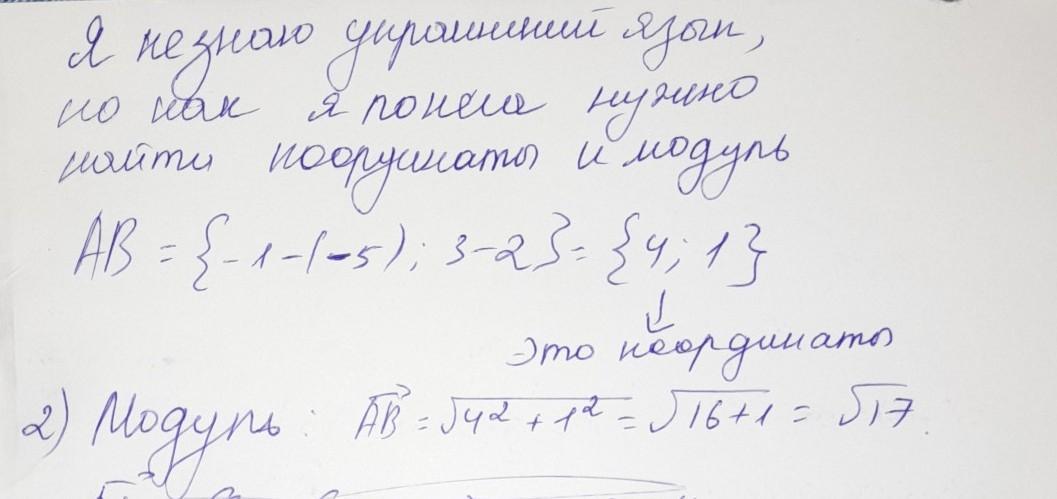 Я не знаю украинский язык,
но как я поняла нужно
найти координаты и модуль
AB = {-1-(-5); 3-2} = {4; 1}
↓
это координаты
2) Модуль: AB⃗ = √4² + 1² = √16+1 = √17.